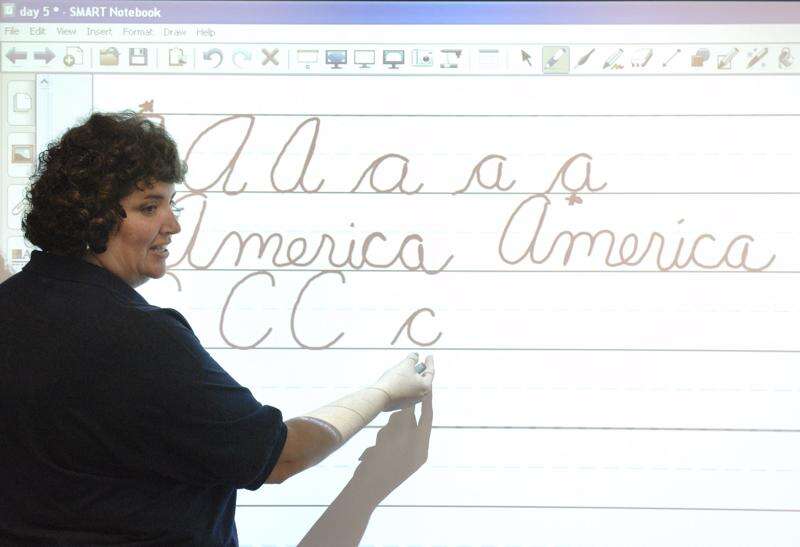 day 5 * - SMART Notebook
File Edit View Insert Format Draw Help
A A a a a
America America
C C c